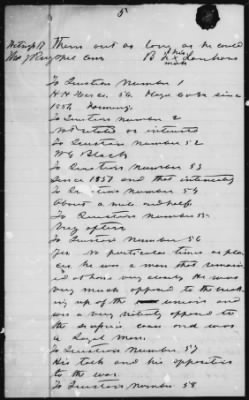 5
them out as long as he could
B N X Lambers
his
mark
To Question Number 1
H H 56. Mayo since
1857 Farming.
To Question Number 2
Not related or interested
To Question Number 52
W G Black
To Question Number 53
Since 1857 and that intimately
To Question Number 54
About a mile and half
To Question Number 55
Very often
To Question Number 56
Yes no particular time or place
he was a man that remained
at home very closely He was
very much opposed to the breaking
up of the union and
was a very opposed to
the cause and was
a Loyal Man.
To Question Number 57
His talk and his opposition
to the war
To Question Number 58